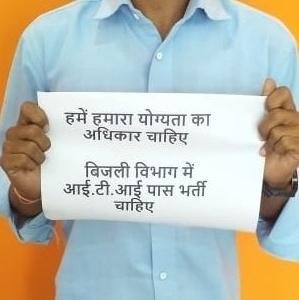 हमें हमारा योग्यता का
अधिकार चाहिए
बिजली विभाग में
आई.टी.आई पास भर्ती
चाहिए